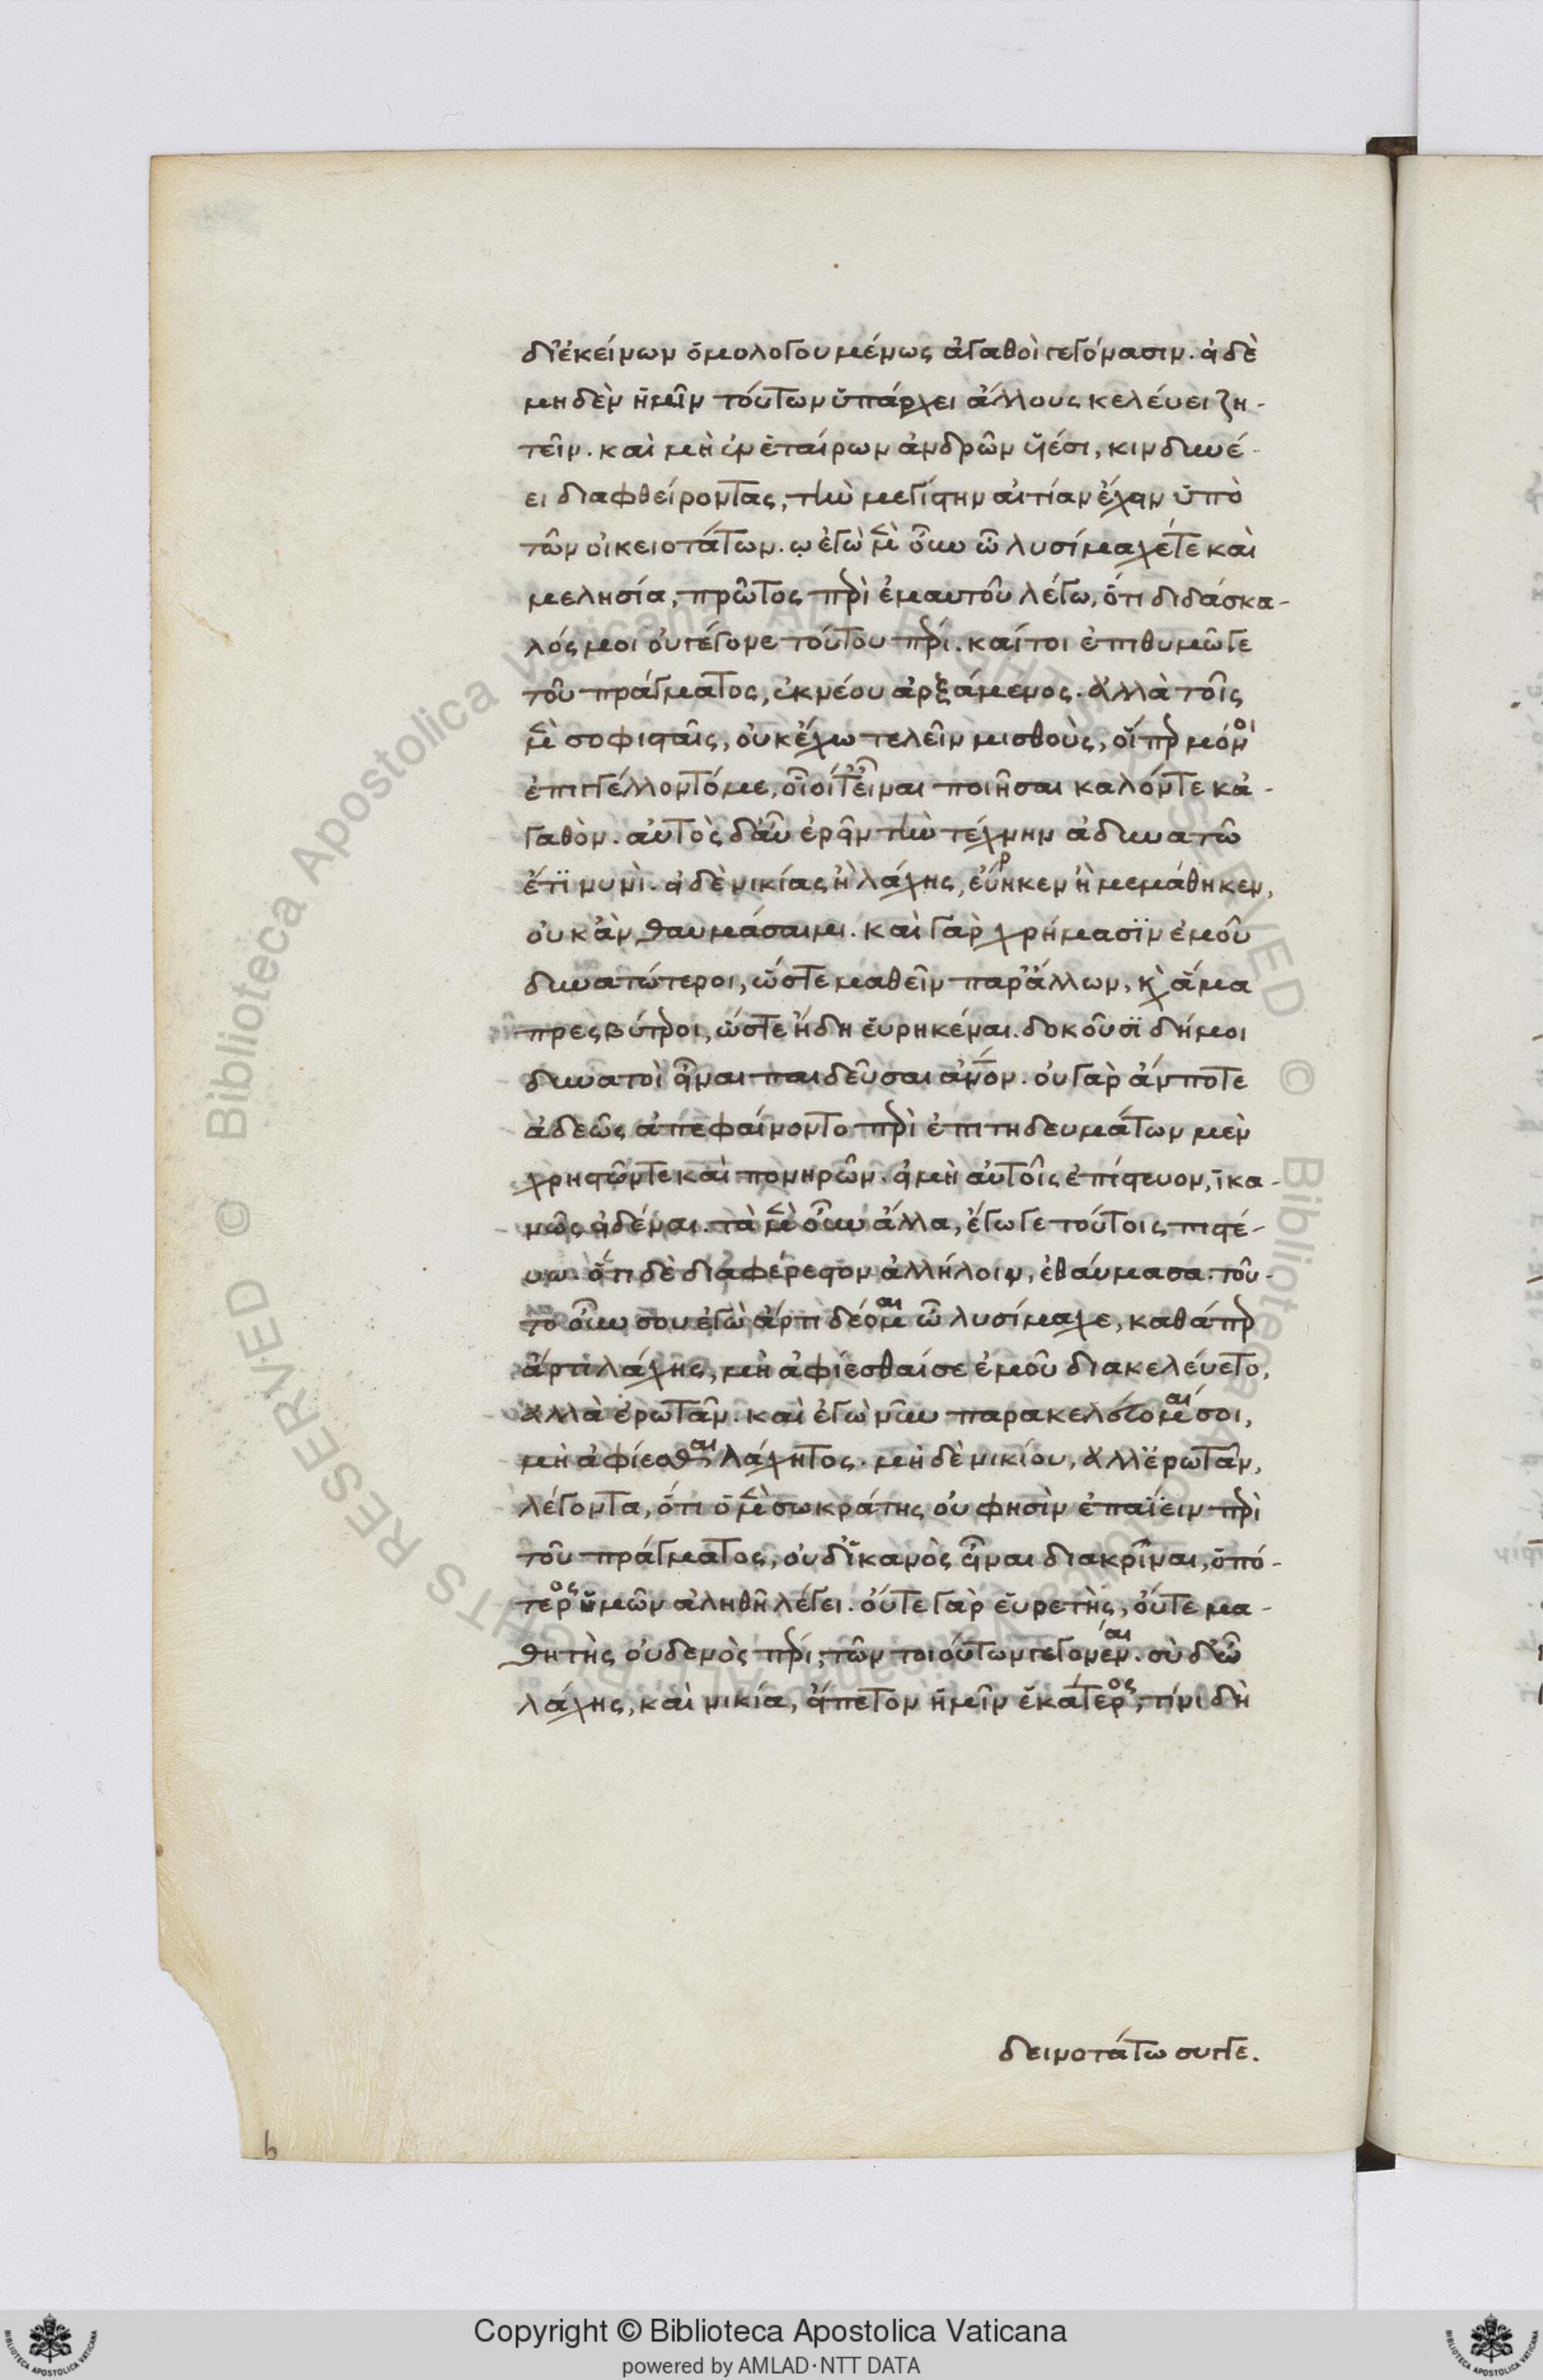 δι' ἐκείνων ὁμολογουμένως ἀγαθοὶ γεγόνασιν. εἰ δὲ
μηδὲν ἡμῖν τούτων ὑπάρχει ἄλλους κελεύει ζη-
τεῖν. καὶ μὴ ἐν ἑταίρων ἀνδρῶν ὑέσι, κινδυνέ-
ει διαφθείροντας, τὴν μεγίστην αἰτίαν ἔχειν ὑπὸ
τῶν οἰκειοτάτων. ἐγὼ μὲν οὖν ὦ λυσίμαχέτε καὶ
μελησία, πρῶτος περὶ ἐμαυτοῦ λέγω, ὅτι διδάσκα-
λός μοι οὐ γέγονε τούτου πέρι. καίτοι ἐπιθυμῶ γε
τοῦ πράγματος, ἐκ νέου ἀρξάμενος. ἀλλὰ τοῖς
μὲν σοφισταῖς, οὐκ ἔχω τελεῖν μισθοὺς, οἵπερ μόνοι
ἐπηγέλλοντό με, οἷοί τ' εἶναι ποιῆσαι καλόν τε κἀ-
γαθὸν. αὐτὸς δ' αὖ εὑρεῖν τὴν τέχνην ἀδυνατῶ
ἔτι νυνὶ. εἰ δὲ νικίας ἢ λάχης, εὕρηκεν ἢ μεμάθηκεν,
οὐκ ἂν θαυμάσαιμι. καὶ γὰρ χρήμασιν ἐμοῦ
δυνατώτεροι, ὥστε μαθεῖν παρ' ἄλλων, καὶ ἅμα
πρεσβύτεροι, ὥστε ἤδη εὑρηκέναι. δοκοῦσι δή μοι
δυνατοὶ εἶναι παιδεῦσαι ἄνον. οὐ γὰρ ἄν ποτε
ἀδεῶς ἀπεφαίνοντο περὶ ἐπιτηδευμάτων μὲν
χρηστῶν τε καὶ πονηρῶν. εἰ μὴ αὐτοῖς ἐπίστευον, ἱκα-
νῶς εἰδέναι. τὰ μὲν οὖν ἄλλα, ἔγωγε τούτοις πιστέ-
υω. ὅτι δὲ διαφέρεστον ἀλλήλοιν, ἐθαύμασα. τοῦ-
το οὖν σου ἐγὼ ἄρτι δέομαι ὦ λυσίμαχε, καθάπερ
ἄρτι λάχης, μὴ ἀφίεσθαί σε ἐμοῦ διακελεύετο,
ἀλλὰ ἐρωτᾶν. καὶ ἐγὼ νῦν παρακελεύομαί σοι,
μὴ ἀφίεσθαι λάχητος. μὴ δὲ νικίου, ἀλλ' ἐρωτᾶν,
λέγοντα, ὅτι ὁ μὲν σωκράτης οὔ φησιν ἐπαΐειν περὶ
τοῦ πράγματος, οὐδ' ἱκανὸς εἶναι διακρῖναι, ὁπό-
τερος ὑμῶν ἀληθῆ λέγει. οὔτε γὰρ εὑρετὴς, οὔτε μα-
θητὴς οὐδενὸς πέρι, τῶν τοιούτων γεγονέναι. σὺ δ' ὦ
λάχης, καὶ νικία, εἴπετον ἡμῖν ἑκάτερος, τίνι δὴ
δεινοτάτω συγγε.
b
Copyright © Biblioteca Apostolica Vaticana
powered by AMLAD·NTT DATA